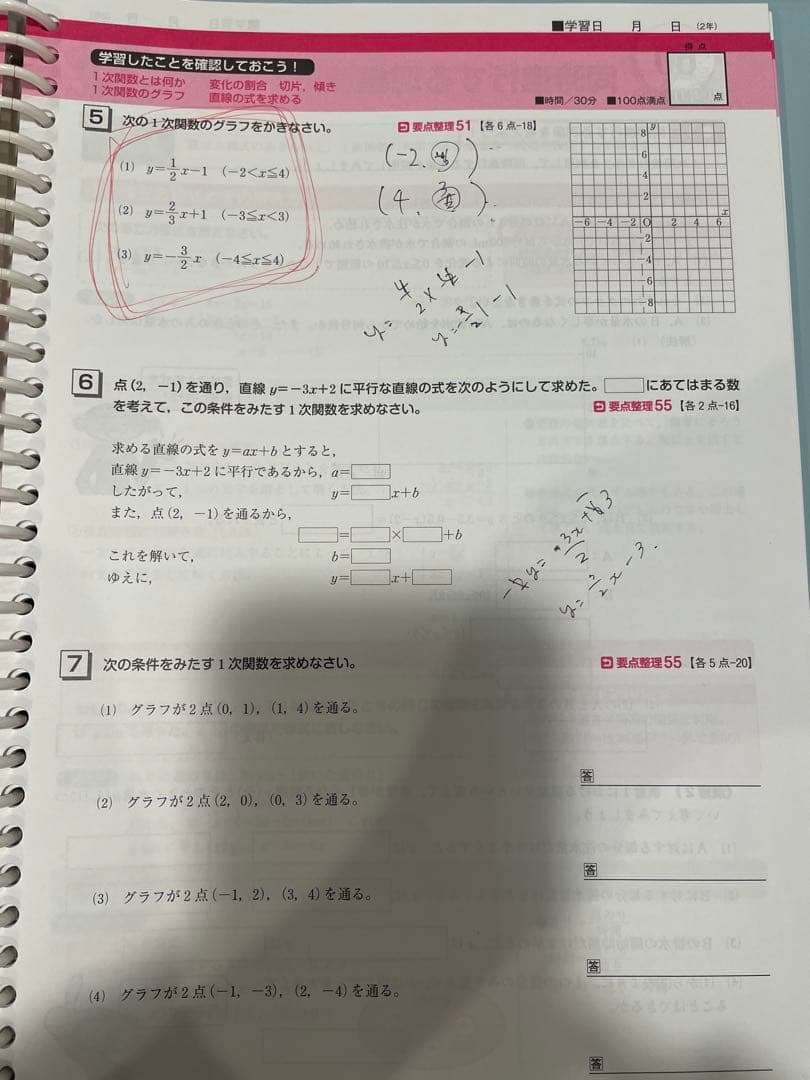 ■学習日 月 日 (2年)
学習したことを確認しておこう!
1次関数とは何か 変化の割合 切片,傾き
1次関数のグラフ 直線の式を求める
得点
点
■時間/30分 ■100点満点
5 次の1次関数のグラフをかきなさい。 要点整理51【各6点-18】
(1) y=1/2x-1 (-2<x≦4)
(2) y=2/3x+1 (-3≦x<3)
(3) y=-3/2x (-4≦x≦4)
(-2,
(4,
y
8
6
4
2
x
-6 -4 -2 O 2 4 6
-2
-4
-6
-8
6 点(2, -1)を通り,直線y=-3x+2に平行な直線の式を次のようにして求めた。□にあてはまる数
を考えて,この条件をみたす1次関数を求めなさい。 要点整理55【各2点-16】
求める直線の式をy=ax+bとすると,
直線y=-3x+2に平行であるから,a=□
したがって, y=□x+b
また,点(2, -1)を通るから,
□=□×□+b
これを解いて, b=□
ゆえに, y=□x+□
y=3/2x-3.
7 次の条件をみたす1次関数を求めなさい。 要点整理55【各5点-20】
(1) グラフが2点(0, 1), (1, 4)を通る。
答
(2) グラフが2点(2, 0), (0, 3)を通る。
答
(3) グラフが2点(-1, 2), (3, 4)を通る。
答
(4) グラフが2点(-1, -3), (2, -4)を通る。
答